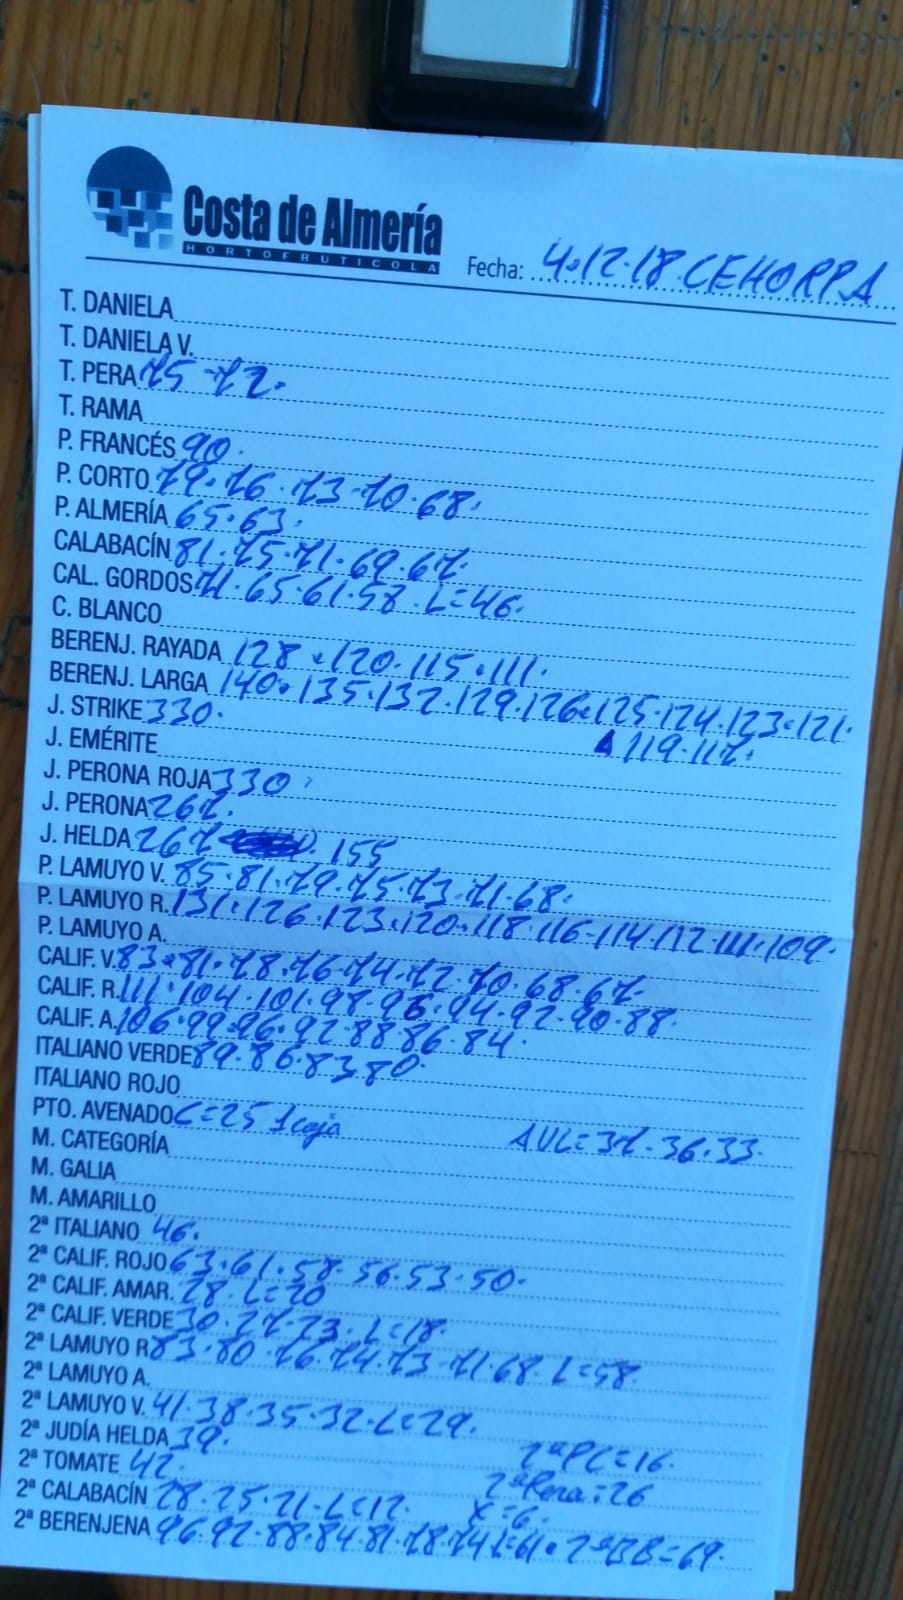 Costa de Almería
HORTOFRUTICOLA
Fecha: 4.12.18. CEHORPA
T. DANIELA
T. DANIELA V.
T. PERA 75-72.
T. RAMA
P. FRANCÉS 90.
P. CORTO 79.76.73-70.68.
P. ALMERÍA 65.63.
CALABACÍN 81.75.71.69.67.
CAL. GORDOS 71.65.61.58. L=46.
C. BLANCO
BERENJ. RAYADA 128.120.115.111.
BERENJ. LARGA 140.135.132.129.126.125.124.123.121.
119.117.
J. STRIKE 330.
J. EMÉRITE
J. PERONA ROJA 330.
J. PERONA 267.
J. HELDA 267 . 155
P. LAMUYO V. 85.81.79.75.73.71.68.
P. LAMUYO R. 131.126.123.120.118.116-114.112.111.109.
P. LAMUYO A.
CALIF. V. 83.81.78.76.74.72.70.68.67.
CALIF. R. 111.104.101.98.96.94.92.90.88.
CALIF. A. 106.99.96.92.88.86.84.
ITALIANO VERDE 89.86.83.80.
ITALIANO ROJO
PTO. AVENADO C=25 1 caja AVL=37.36.33.
M. CATEGORÍA
M. GALIA
M. AMARILLO
2ª ITALIANO 46.
2ª CALIF. ROJO 63.61.58.56.53.50.
2ª CALIF. AMAR. 28. L=20
2ª CALIF. VERDE 30.27.23. L=18.
2ª LAMUYO R 83.80.76.74.73.71.68. L=58.
2ª LAMUYO A.
2ª LAMUYO V. 41.38.35.32. L=29.
2ª JUDÍA HELDA 39. 2ªPC=16.
2ª TOMATE 42. 2ªPera=26
2ª CALABACÍN 28.25.21. L=12. X=6.
2ª BERENJENA 96.92.88.84.81.78.74 L=61. 2ªBB=69.